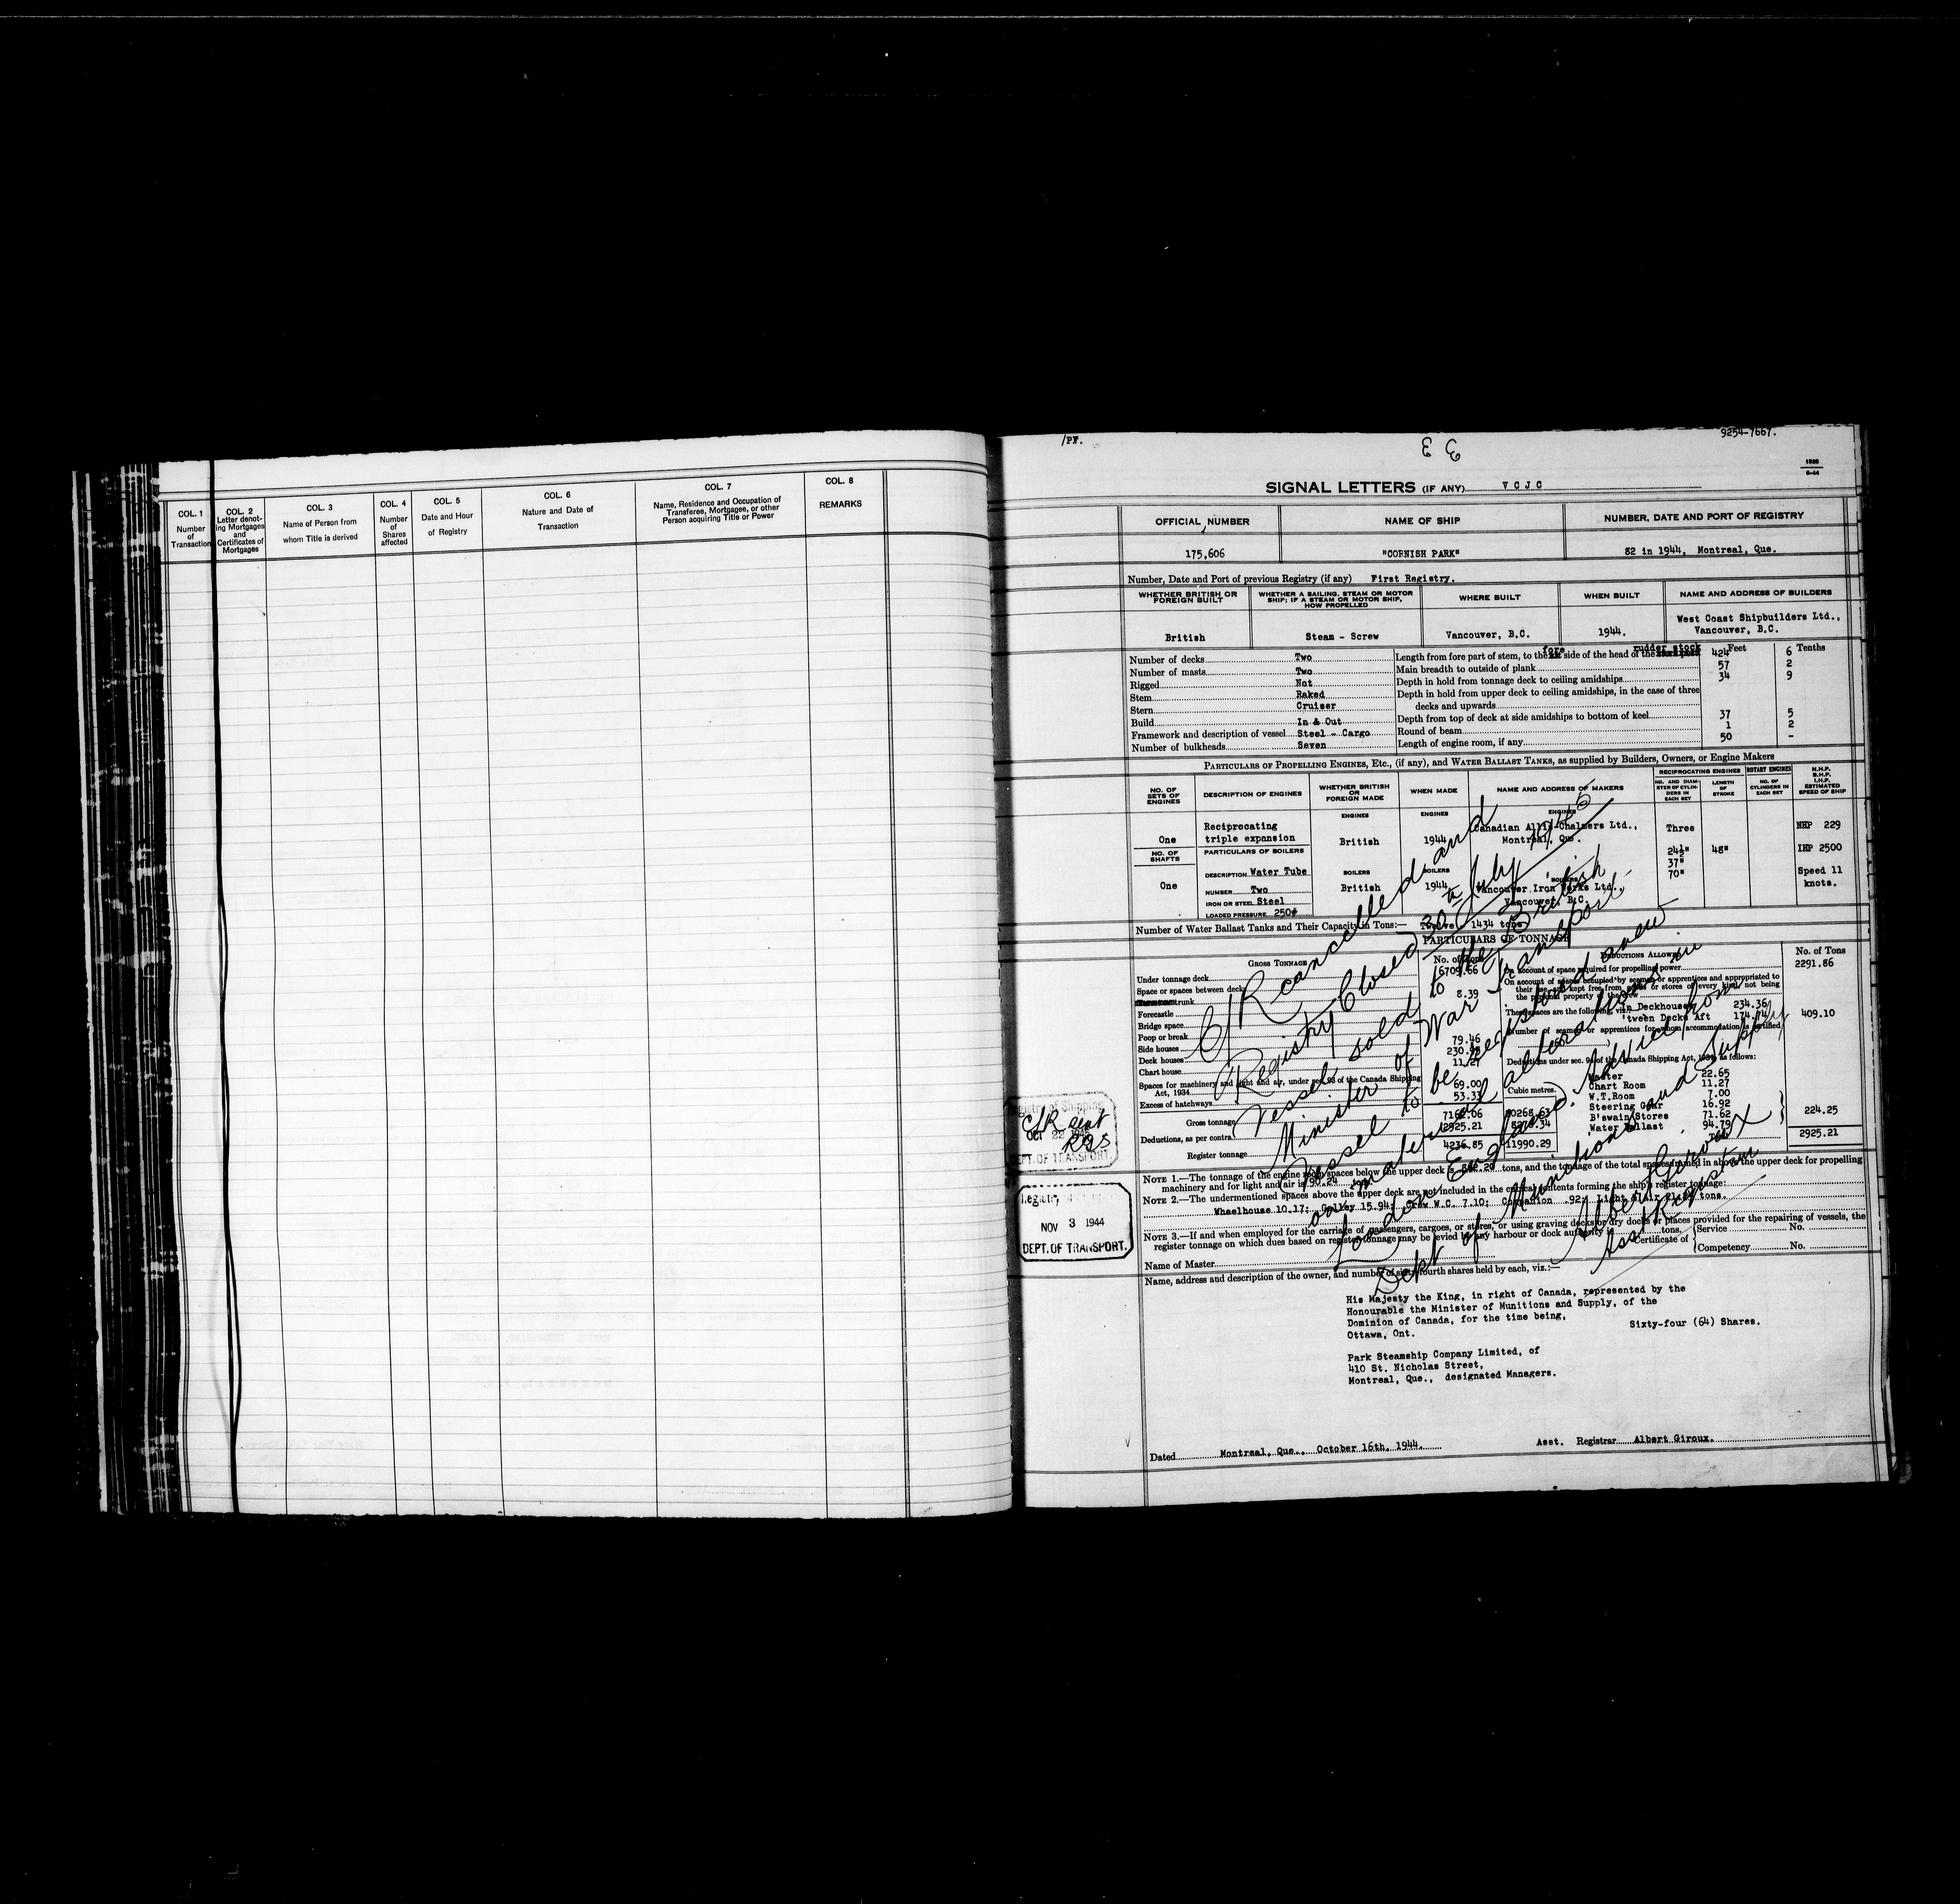 COL. 1
Number
of
Transaction
COL. 2
Letter denot-
ing Mortgages
and
Certificates of
Mortgages
COL. 3
Name of Person from
whom Title is derived
COL. 4
Number
of
Shares
affected
COL. 5
Date and Hour
of Registry
COL. 6
Nature and Date of
Transaction
COL. 7
Name, Residence and Occupation of
Transferee, Mortgagee, or other
Person acquiring Title or Power
COL. 8
REMARKS
/PF.
9254-7667.
SIGNAL LETTERS (IF ANY) V C J C
OFFICIAL NUMBER
NAME OF SHIP
NUMBER, DATE AND PORT OF REGISTRY
175,606
"CORNISH PARK"
82 in 1944, Montreal, Que.
Number, Date and Port of previous Registry (if any) First Registry.
WHETHER BRITISH OR
FOREIGN BUILT
WHETHER A SAILING, STEAM OR MOTOR
SHIP; IF A STEAM OR MOTOR SHIP,
HOW PROPELLED
WHERE BUILT
WHEN BUILT
NAME AND ADDRESS OF BUILDERS
British
Steam - Screw
Vancouver, B.C.
1944.
West Coast Shipbuilders Ltd.,
Vancouver, B.C.
Number of decks Two
Number of masts Two
Rigged Not
Stem Raked
Stern Cruiser
Build In & Out
Framework and description of vessel Steel - Cargo
Number of bulkheads Seven
Feet Tenths
Length from fore part of stem, to the fore side of the head of the rudder stock 424 6
Main breadth to outside of plank 57 2
Depth in hold from tonnage deck to ceiling amidships 34 9
Depth in hold from upper deck to ceiling amidships, in the case of three
decks and upwards
Depth from top of deck at side amidships to bottom of keel 37 5
Round of beam 1 2
Length of engine room, if any 50 -
PARTICULARS OF PROPELLING ENGINES, ETC., (if any), and WATER BALLAST TANKS, as supplied by Builders, Owners, or Engine Makers
NO. OF
SETS OF
ENGINES
DESCRIPTION OF ENGINES
WHETHER BRITISH
OR
FOREIGN MADE
WHEN MADE
NAME AND ADDRESS OF MAKERS
RECIPROCATING ENGINES
NO. AND DIAM-
ETER OF CYLIN-
DERS IN
EACH SET
LENGTH
OF
STROKE
ROTARY ENGINES
NO. OF
CYLINDERS IN
EACH SET
N.H.P.
B.H.P.
I.H.P.
ESTIMATED
SPEED OF SHIP
One
Reciprocating
triple expansion
ENGINES
British
ENGINES
1944
ENGINES
Canadian Allis-Chalmers Ltd.,
Montreal, Que.
Three
24½"
37"
70"
48"
NHP 229
IHP 2500
Speed 11
knots.
NO. OF
SHAFTS
One
PARTICULARS OF BOILERS
DESCRIPTION Water Tube
NUMBER Two
IRON OR STEEL Steel
LOADED PRESSURE 250#
BOILERS
British
BOILERS
1944
BOILERS
Vancouver Iron Works Ltd.,
Vancouver, B.C.
Number of Water Ballast Tanks and Their Capacity in Tons:— Twelve 1434 tons
PARTICULARS OF TONNAGE
GROSS TONNAGE No. of Tons
Under tonnage deck 6709.66
Space or spaces between decks
trunk 8.39
Forecastle
Bridge space
Poop or break
Side houses 79.46
Deck houses 230.95
Chart house 11.27
Spaces for machinery and light and air, under sec. 93 of the Canada Shipping
Act, 1934 69.00
Excess of hatchways 53.33
Cubic metres.
Gross tonnage 7162.06 20268.63
Deductions, as per contra 2925.21 8278.34
Register tonnage 4236.85 11990.29
DEDUCTIONS ALLOWED No. of Tons
On account of space required for propelling power 2291.86
On account of spaces occupied by seamen or apprentices and appropriated to
their use, and kept free from goods or stores of every kind, not being
the personal property of the crew
These spaces are the following, viz.:
In Deckhouses 234.36
'tween Decks Aft 174.74
409.10
Number of seamen or apprentices for whom accommodation is certified
Deductions under sec. 94 of the Canada Shipping Act, 1934, as follows:
Master 22.65
Chart Room 11.27
W.T.Room 7.00
Steering Gear 16.92
B'swain Stores 71.62
Water Ballast 94.79
224.25
2925.21
C/R cancelled and
Registry Closed 30th July 1945
Vessel sold to the British
Minister of War Transport,
Vessel to be registered anew
on material alterations in
London England. Advice from
Dept of Munitions and Supply
Albert Giroux
Asst Registrar
Registry of Shipping
C/R sent
RGS
OCT 22 1945
DEPT. OF TRANSPORT.
NOV 3 1944
DEPT. OF TRANSPORT.
NOTE 1.—The tonnage of the engine room spaces below the upper deck is tons, and the tonnage of the total spaces framed in above the upper deck for propelling
machinery and for light and air is 90.24 tons.
NOTE 2.—The undermentioned spaces above the upper deck are not included in the cubical contents forming the ship's register tonnage:
Wheelhouse 10.17; Galley 15.94; Crew W.C. 7.10; Companion .92; Light & Air tons.
NOTE 3.—If and when employed for the carriage of passengers, cargoes, or stores, or using graving docks or dry docks or places provided for the repairing of vessels, the
register tonnage on which dues based on register tonnage may be levied by any harbour or dock authority is tons.
Name of Master Certificate of Service No.
Competency No.
Name, address and description of the owner, and number of sixty-fourth shares held by each, viz.:—
His Majesty the King, in right of Canada, represented by the
Honourable the Minister of Munitions and Supply, of the
Dominion of Canada, for the time being,
Ottawa, Ont. Sixty-four (64) Shares.
Park Steamship Company Limited, of
410 St. Nicholas Street,
Montreal, Que., designated Managers.
Dated Montreal, Que., October 16th, 1944. Asst. Registrar Albert Giroux.